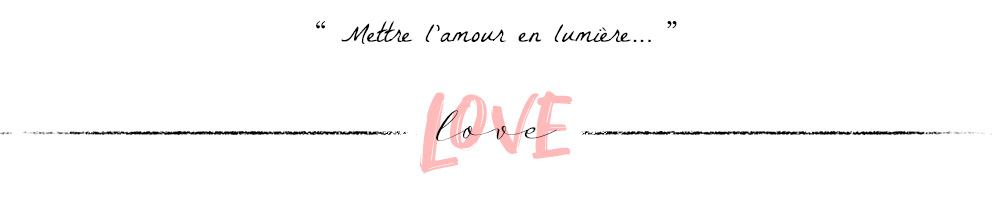 “ Mettre l'amour en lumière... ”
LOVE
love